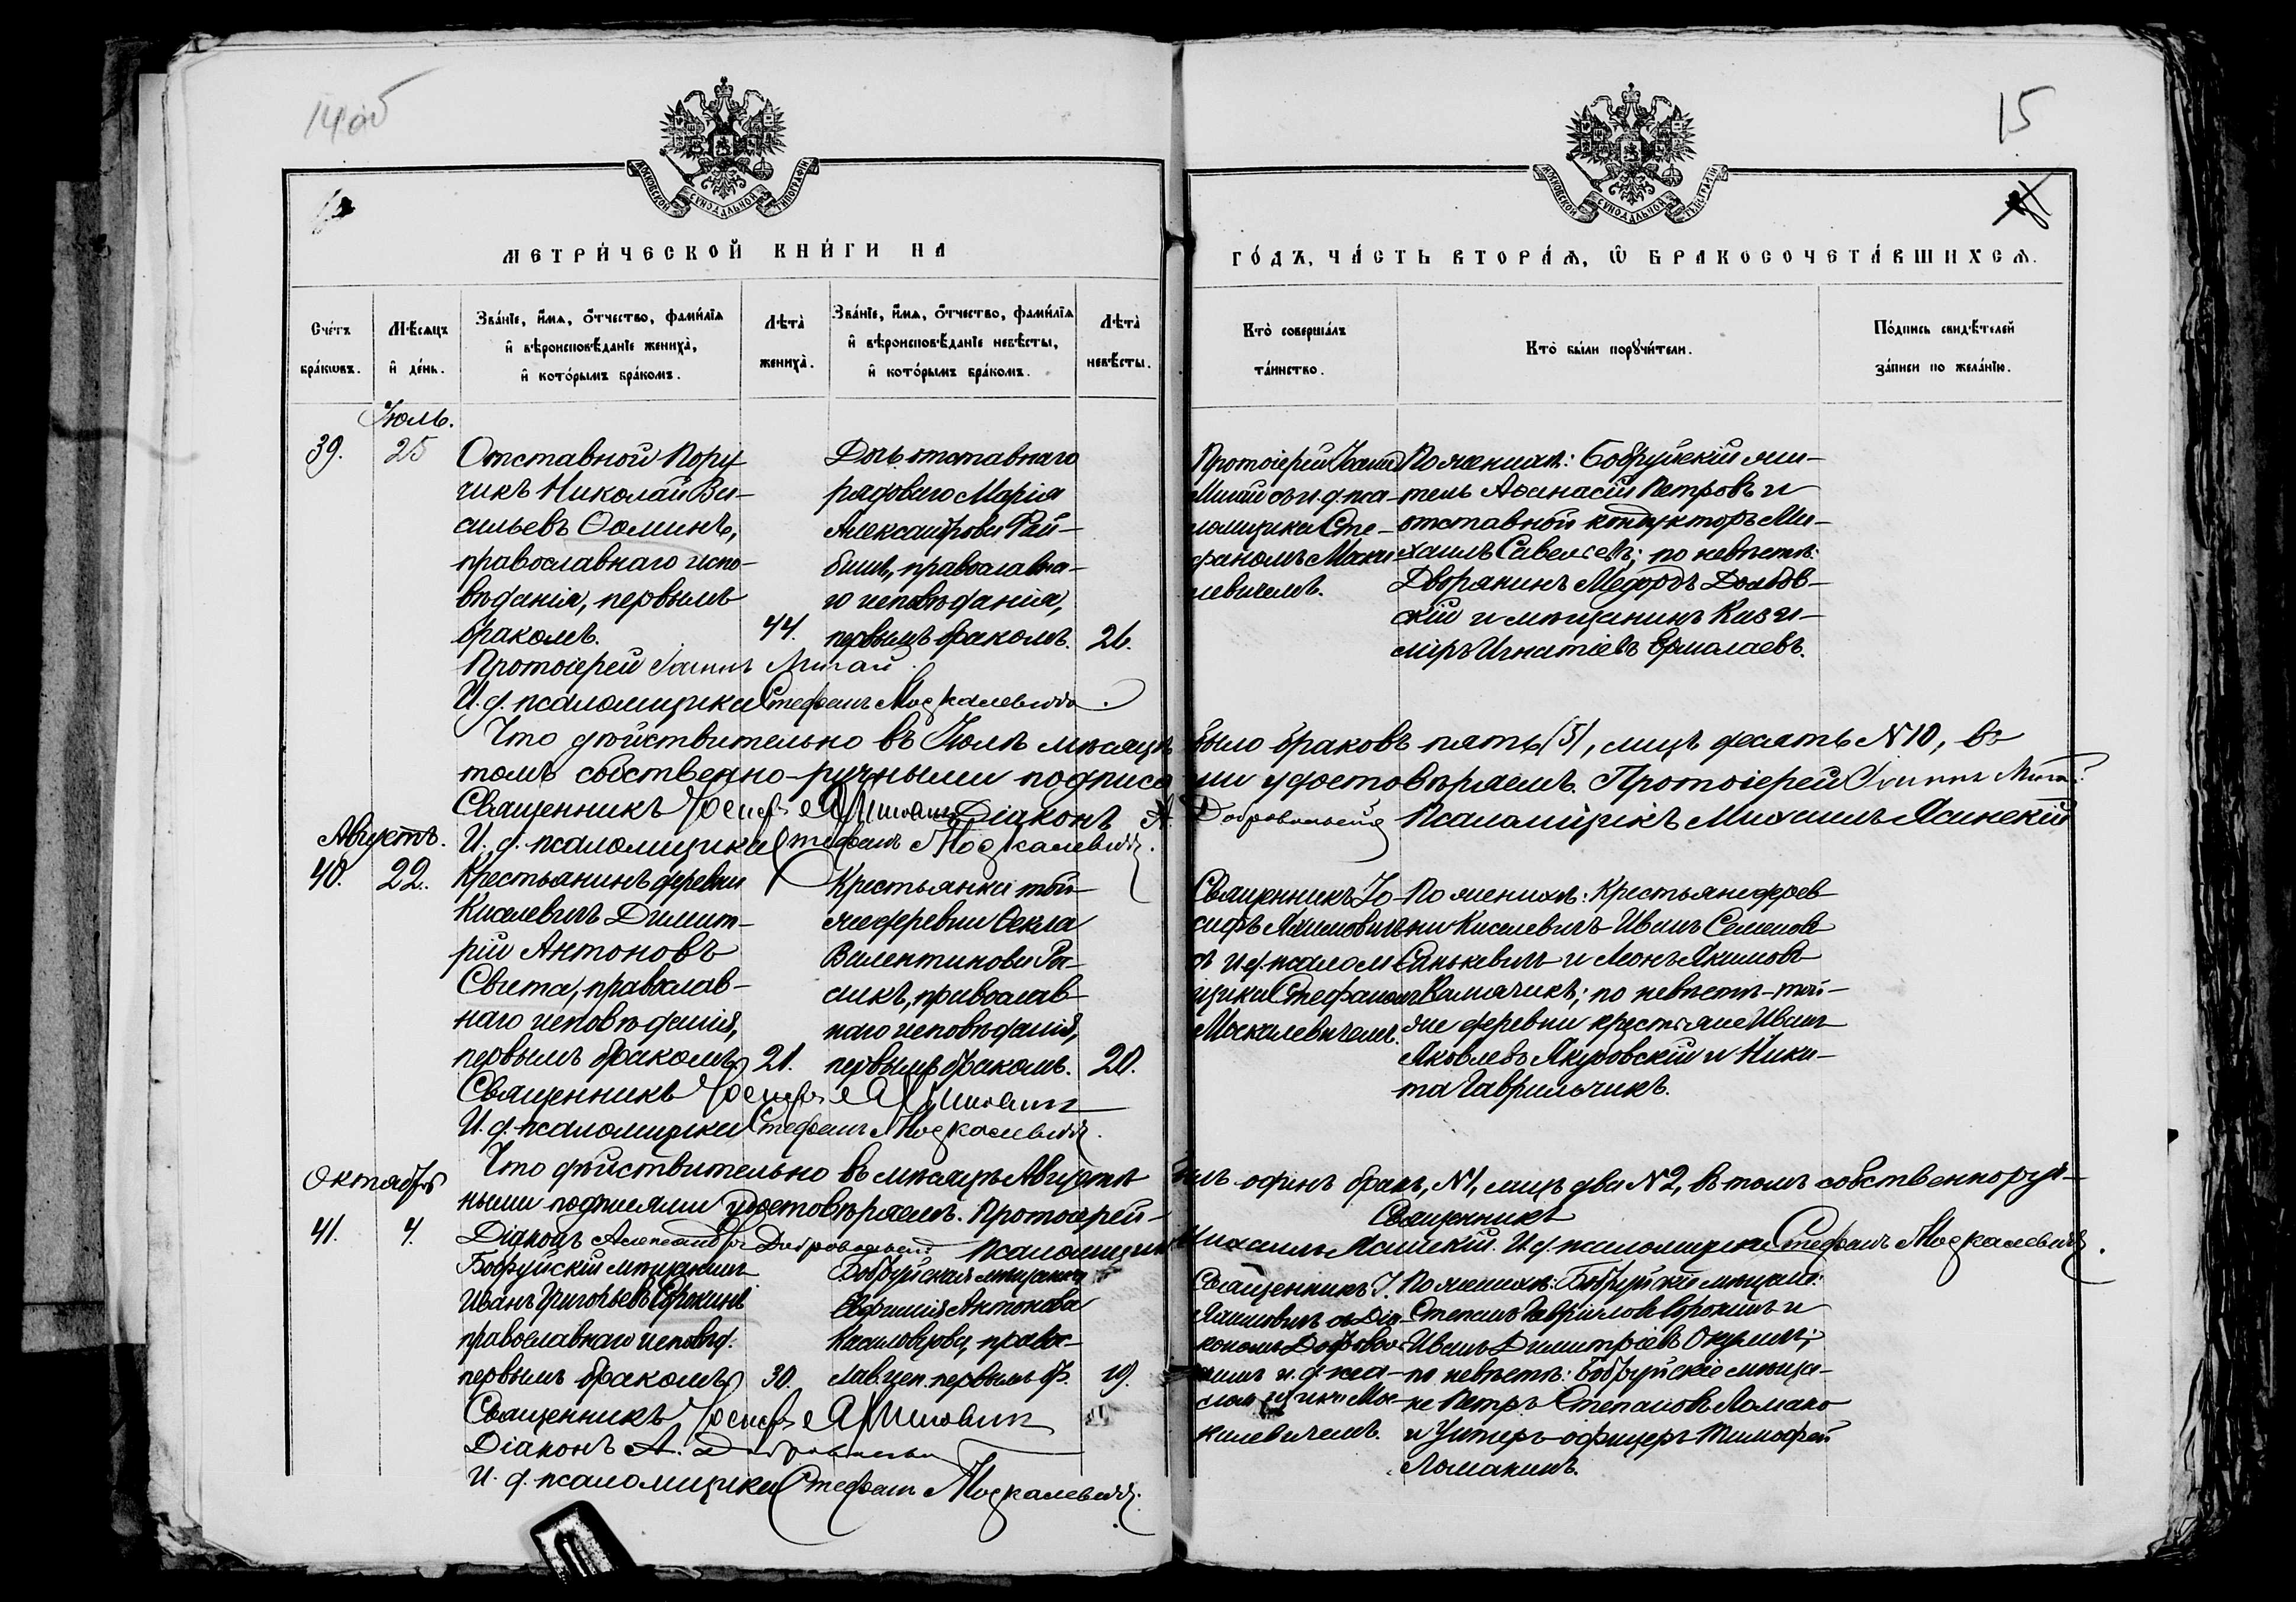 14об
15
МОСКОВСКОЙ СУНОДАЛЬНОЙ ТИПОГРАФІИ
МОСКОВСКОЙ СУНОДАЛЬНОЙ ТИПОГРАФІИ
МЕТРИ́ЧЕСКОЙ КНИ́ГИ НА
ГО́ДЪ, ЧА́СТЬ ВТОРА́Ѧ, Ѡ БРАКОСОЧЕТА́ВШИХСѦ.
Сче́тъ бра́кѡвъ.
Мѣ́сяцъ и҆ де́нь.
Зва́нїе, и҆́мѧ, ѻ҆́тчество, фами́лїѧ и҆ вѣроисповѣ́данїе жениха̀, и҆ кото́рымъ бра́комъ.
Лѣта̀ жениха̀.
Зва́нїе, и҆́мѧ, ѻ҆́тчество, фами́лїѧ и҆ вѣроисповѣ́данїе невѣ́сты, и҆ кото́рымъ бра́комъ.
Лѣта̀ невѣ́сты.
Кто̀ соверша́лъ та́инство.
Кто̀ бы́ли порꙋчи́тели.
По́дпись свидѣ́телей за́писи по жела́нїю.
Іюль.
39.
25
Отставной Пору
чикъ Николай Ва-
сильевъ Ѳоминъ,
православнаго испо-
вѣданія, первымъ
бракомъ.
44.
Дочь отставнаго
рядоваго Марія
Александрова Рай-
бишъ, православна-
го исповѣданія,
первымъ бракомъ.
26.
Протоіерей Іоаннъ
Мигай съ и. д. пса-
ломщика Сте-
фаномъ Моска
левичемъ.
По женихѣ: Бобруйскій жи-
тель Аѳанасій Петровъ и
отставной кондукторъ Ми-
хаилъ Савельевъ; по невѣстѣ:
Дворянинъ Меѳодъ Долбов-
скій и мѣщанинъ Кази-
міръ Игнатіевъ Ермолаевъ.
Протоіерей Іоаннъ Мигай
И. д. псаломщика Стефанъ Москалевичъ.
Что дѣйствительно въ Іюлѣ мѣсяцѣ было браковъ пять (5), лицъ десять №10, въ
томъ собственно-ручными подписями удостовѣряемъ. Протоіерей Іоаннъ Мигай
Священникъ Іосифъ Якимовичъ Діаконъ А. Добровольскій Псаломщикъ Михаилъ Ясинскій
И. д. псаломщика Стефанъ Москалевичъ.
Августъ.
40.
22.
Крестьянинъ деревни
Киселевичъ Димит-
рій Антоновъ
Свита, православ-
наго исповѣданія,
первымъ бракомъ
21.
Крестьянка той-
же деревни Ѳекла
Валентинова Ра-
сикъ, православ
наго исповѣданія,
первымъ бракомъ.
20.
Священникъ Іо-
сифъ Якимовичъ
съ и. д. псалом
щика Стефаномъ
Москалевичемъ.
По женихѣ: Крестьяне дерев
ни Киселевичъ Иванъ Семеновъ
Санкевичъ и Леонъ Акимовъ
Камачикъ; по невѣстѣ-той-
же деревни крестьяне Иванъ
Яковлевъ Якубовскій и Ники-
та Гаврильчикъ.
Священникъ Іосифъ Якимовичъ
И. д. псаломщика Стефанъ Москалевичъ.
Что дѣйствительно въ мѣсяцѣ Августѣ былъ одинъ бракъ, №1, лицъ два №2, въ томъ собственноруч-
ными подписями удостовѣряемъ. Протоіерей- Священникъ
Діаконъ Александръ Добровольскій Псаломщикъ Михаилъ Ясинскій. И. д. псаломщика Стефанъ Москалевичъ.
Октябрь
41.
4.
Бобруйскій мѣщанинъ
Иванъ Григорьевъ Сорокинъ
православнаго исповѣд.
первымъ бракомъ
30.
Бобруйская мѣщанка
Антонова
право-
слав. исп. первымъ бр.
19.
Священникъ І.
Якимовичъ съ Діа-
кономъ Доброволь
скимъ и. д. пса-
ломщика Мос-
калевичемъ.
По женихѣ: Бобруйскіе мѣщане:
Степанъ Гавріиловъ Сорокинъ и
Иванъ Димитріевъ Окулич;
по невѣстѣ: Бобруйскіе мѣща-
не Петръ Степановъ Ломако
и Унтеръ-офицеръ Тимофей
Ломакинъ.
Священникъ Іосифъ Якимовичъ
Діаконъ А. Добровольскій
И. д. псаломщика Стефанъ Москалевичъ.